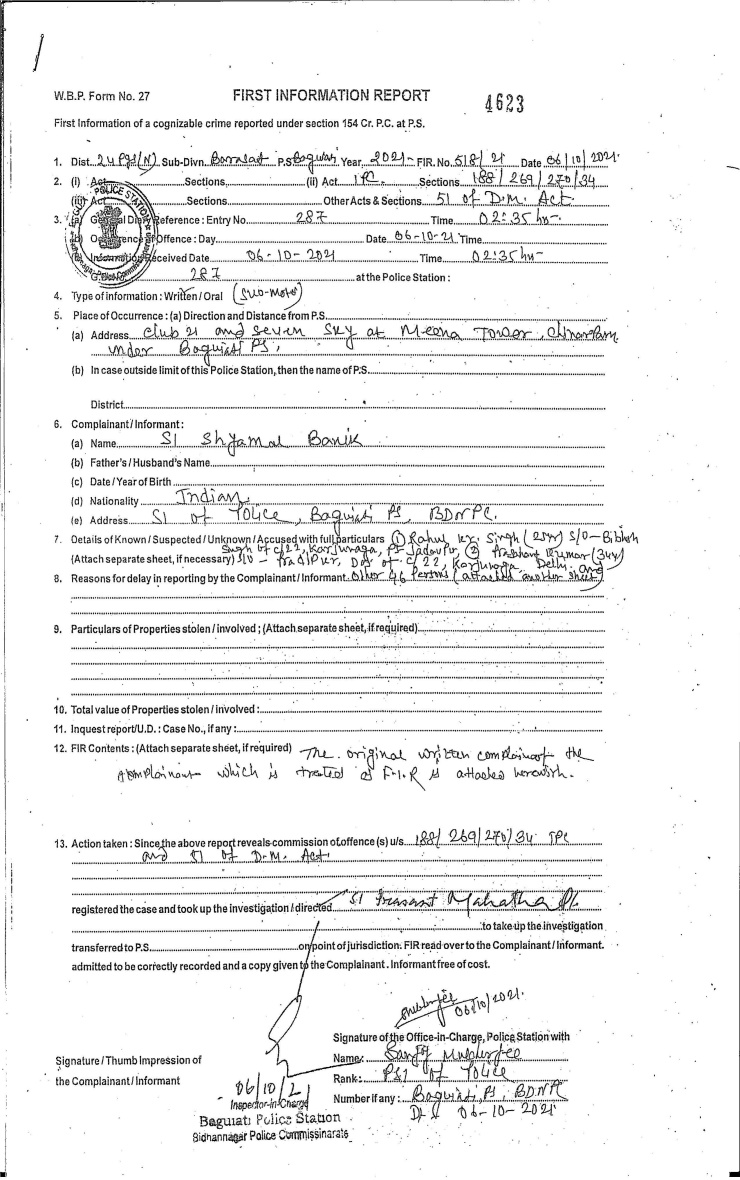 W.B.P. Form No. 27 FIRST INFORMATION REPORT 4623
First Information of a cognizable crime reported under section 154 Cr. P.C. at P.S.
1. Dist. 24 Pgs(N) Sub-Divn. Barasat P.S. Baguiati Year, 2021 FIR. No. 518/21 Date 06/10/2021
2. (i) Act Sections (ii) Act IPC Sections 188/269/270/34
(iii) Act Sections Other Acts & Sections 51 of D.M. Act.
3. (a) General Diary Reference : Entry No. 287 Time 02:35 hr
(b) Occurrence of Offence : Day Date 06-10-21 Time
Information Received Date 06-10-2021 Time 02:35 hr
287 at the Police Station :
4. Type of information : Written / Oral (Suo-Moto)
5. Place of Occurrence : (a) Direction and Distance from P.S.
(a) Address Club 21 and seven sky at Meena Tower, Chinarpark
under Baguiati PS,
(b) In case outside limit of this Police Station, then the name of P.S.
District
6. Complainant / Informant :
(a) Name SI Shyamal Banik
(b) Father's / Husband's Name
(c) Date / Year of Birth
(d) Nationality Indian
(e) Address SI of Police, Baguiati PS, BDNPC.
7. Details of Known / Suspected / Unknown / Accused with full particulars (1) Rahul kr. Singh (25yr) S/O -
Singh of C/22, PS Jadavpur, (2) Prashant Kumar (34yr)
(Attach separate sheet, if necessary) S/O - of C/22, Delhi and
8. Reasons for delay in reporting by the Complainant / Informant. other 46 Persons (attached another sheet)
9. Particulars of Properties stolen / involved ; (Attach separate sheet, if required)
10. Total value of Properties stolen / involved :
11. Inquest report/U.D. : Case No., if any :
12. FIR Contents : (Attach separate sheet, if required) The original written complaint of the
complainant which is treated as F.I.R is attached herewith.
13. Action taken : Since the above report reveals commission of offence (s) u/s. 188/269/270/34 IPC
and 51 of D.M. Act.
registered the case and took up the investigation / directed SI Prasant Mahatha
to take up the investigation
transferred to P.S. on point of jurisdiction. FIR read over to the Complainant / Informant.
admitted to be correctly recorded and a copy given to the Complainant. Informant free of cost.
06/10/2021.
Signature of the Office-in-Charge, Police Station with
Signature / Thumb Impression of Name: Sanjoy Mukherjee
the Complainant / Informant Rank: PSI of Police
06/10/2 Number if any : Baguiati PS, BDNPC
Inspector-in-Charge 06-10-2021
Baguiati Police Station
Bidhannagar Police Commissinarate